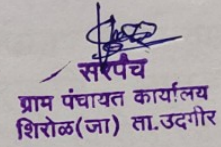 सरपंच
ग्राम पंचायत कार्यालय
शिरोळ(जा) ता.उदगीर